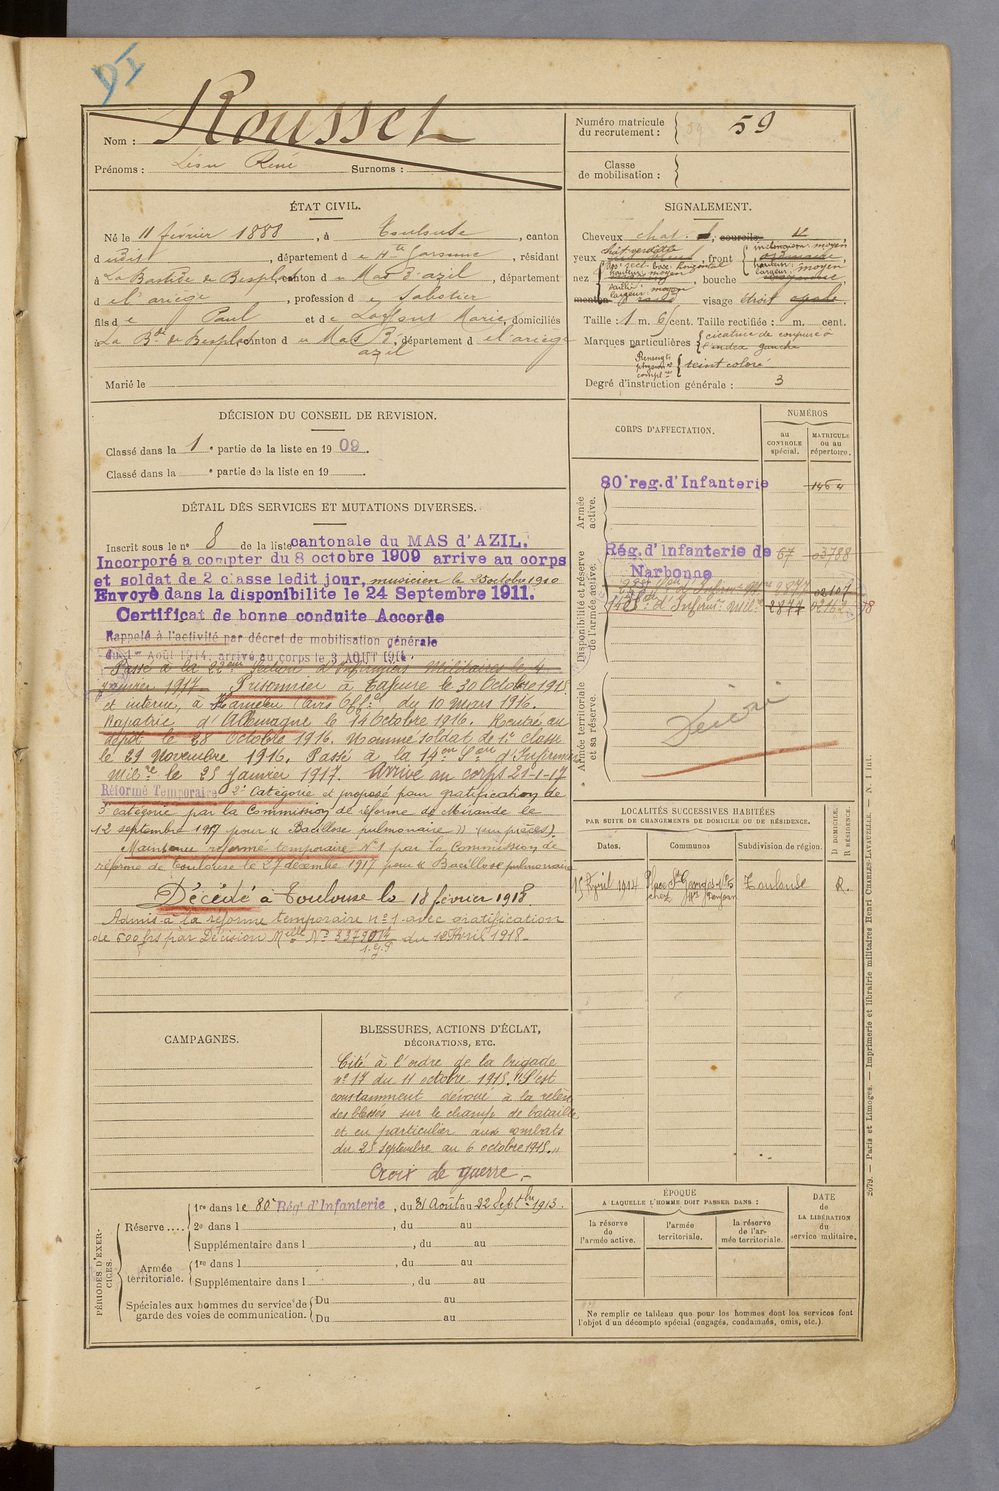 DI
Nom : Rousset
Prénoms : Léon René Surnoms :
Numéro matricule
du recrutement : 59
Classe
de mobilisation :
ÉTAT CIVIL.
Né le 11 février 1888, à Toulouse, canton
dudit, département de Hte Garonne, résidant
à La Bastide de Besplas, canton du Mas d'azil, département
de l'ariège, profession de Sabotier
fils de Paul et de Laffont Marie, domiciliés
à La Bde de Besplas canton du Mas d'azil, département de l'ariège
Marié le
SIGNALEMENT.
Cheveux chat. sourcils
yeux chât verdâtre, front inclinaison moyen
hauteur
largeur moyen
nez dos rect. base horizontal
hauteur moyen
saillie moyen
largeur moyen
, bouche
menton visage étroit ovale.
Taille : 1 m. 61 cent. Taille rectifiée : m. cent.
Marques particulières cicatrice de coupure à
l'index gauche
Renseigts
physion.
complres teint coloré
Degré d'instruction générale : 3
DÉCISION DU CONSEIL DE REVISION.
Classé dans la 1e partie de la liste en 1909.
Classé dans la e partie de la liste en 19
DÉTAIL DES SERVICES ET MUTATIONS DIVERSES.
Inscrit sous le no 8 de la liste cantonale du MAS d'AZIL.
Incorporé a compter du 8 octobre 1909 arrive au corps
et soldat de 2 classe ledit jour, musicien le 25 octobre 1910
Envoyé dans la disponibilite le 24 Septembre 1911.
Certificat de bonne conduite Accorde
Rappelé à l'activité par décret de mobilisation générale
du 1er Août 1914, arrivé au corps le 3 AOUT 1914
Passé à la 22ème Section d'Infirmiers Militaires le 4
janvier 1917 Prisonnier à Tahure le 30 Octobre 1915
et interné à Hameln (Avis Offel du 10 mars 1916.
Rapatrié d'Allemagne le 14 Octobre 1916. Rentré au
dépôt le 28 Octobre 1916. Nommé soldat de 1e classe
le 29 Novembre 1916. Passé à la 17me Son d'Infirmiers
Milres le 25 janvier 1917. Arrivé au corps 21-1-17
Réformé Temporaire 2e Catégorie et proposé pour gratification de
3e catégorie par la Commission de réforme de Mirande le
12 septembre 1917 pour « Bacillose pulmonaire » (em pièces).
Maintenu réformé temporaire No 1 par la Commission de
réforme de Toulouse le 27 décembre 1917 pour « Bacillose pulmonaire
Décédé à Toulouse le 18 février 1918
Admis à la réforme temporaire no 1 avec gratification
de 600 frs par Décision Melle No 337907 du 12 Avril 1918.
CORPS D'AFFECTATION.
NUMÉROS
au
CONTROLE
spécial.
MATRICULE
ou au
répertoire.
Armée
active.
80e reg. d'Infanterie 1464
Disponibilité et réserve
de l'armée active.
Rég. d'Infanterie de 67 03788
Narbonne
22e Son d'Infirm. Mres 2877 02107
Son d'Infirmrs milres 2877 02162
Armée territoriale
et sa réserve.
Décédé
LOCALITÉS SUCCESSIVES HABITÉES
PAR SUITE DE CHANGEMENTS DE DOMICILE OU DE RÉSIDENCE.
Dates. Communes Subdivision de région. D. DOMICILE. R. RÉSIDENCE.
15 Avril 1914 Place St Georges No 25 Toulouse R.
chez
CAMPAGNES.
BLESSURES, ACTIONS D'ÉCLAT,
DÉCORATIONS, ETC.
Cité à l'ordre de la brigade
no 17 du 11 octobre 1915. "S'est
constamment dévoué à la relève
des blessés sur le champ de bataille
et en particulier aux combats
du 25 septembre au 6 octobre 1915."
Croix de guerre
PÉRIODES D'EXERCICES.
Réserve .... 1re dans le 80e Rég. d'Infanterie, du 31 Août au 22 Septbre 1913.
2e dans l , du au
Supplémentaire dans l , du au
Armée
territoriale. 1re dans l , du au
Supplémentaire dans l , du au
Spéciales aux hommes du service de
garde des voies de communication. Du au
Du au
ÉPOQUE
A LAQUELLE L'HOMME DOIT PASSER DANS :
la réserve
de
l'armée active.
l'armée
territoriale.
la réserve
de l'ar-
mée territoriale.
DATE
de
LA LIBÉRATION
du
service militaire.
Ne remplir ce tableau que pour les hommes dont les services font
l'objet d'un décompte spécial (engagés, condamnés, omis, etc.).
2079. — Paris et Limoges. — Imprimerie et librairie militaires Henri CHARLES-LAVAUZELLE. — N. 1 int.